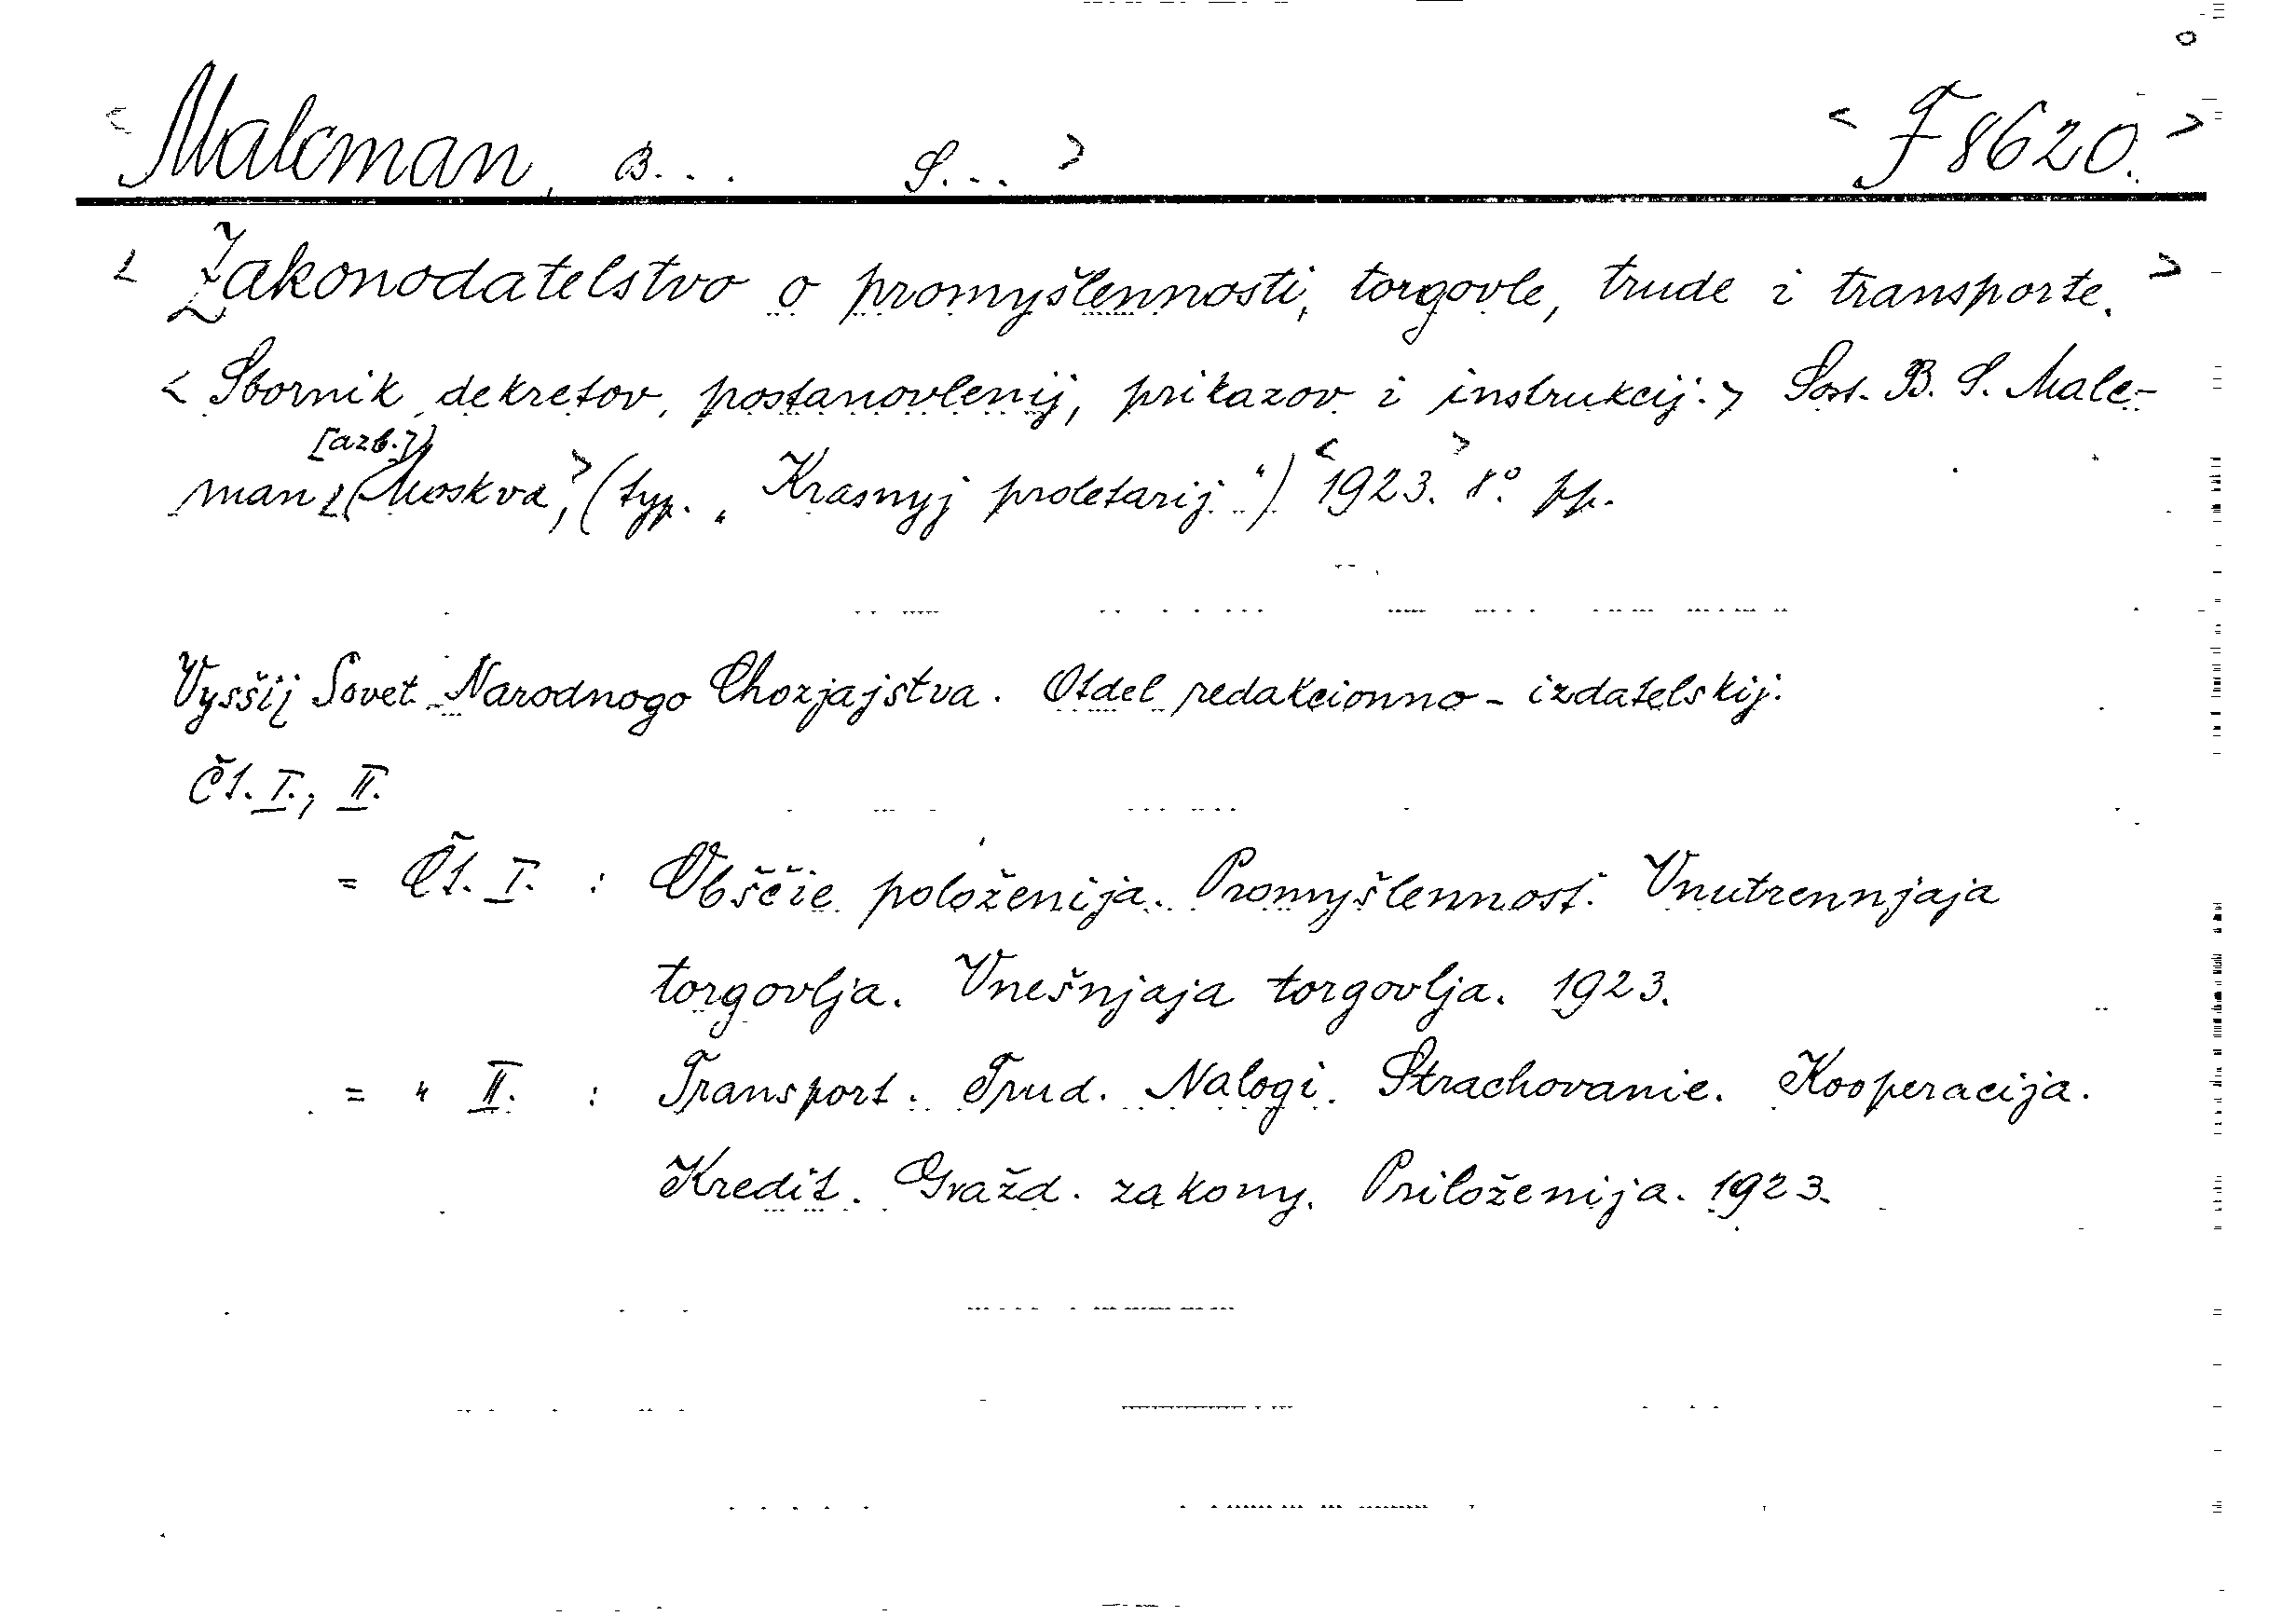 < Malcman, B... S... > < F 8620. >
< Zakonodatelstvo o promyšlennosti, torgovle, trude i transporte. >
< Sbornik dekretov, postanovlenij, prikazov i instrukcij. > Sost. B. S. Malc-
man < (Moskva, > (typ. „Krasnyj proletarij“) < 1923. > 8°. pp.
Vysšij Sovet Narodnogo Chozjajstva. Otdel redakcionno-izdatelskij.
Čt. I., II.
= Čt. I. : Obščie položenija. Promyšlennost. Vnutrennjaja
torgovlja. Vnešnjaja torgovlja. 1923.
= " II. : Transport. Trud. Nalogi. Strachovanie. Kooperacija.
Kredit. Gražd. zakony. Priloženija. 1923.